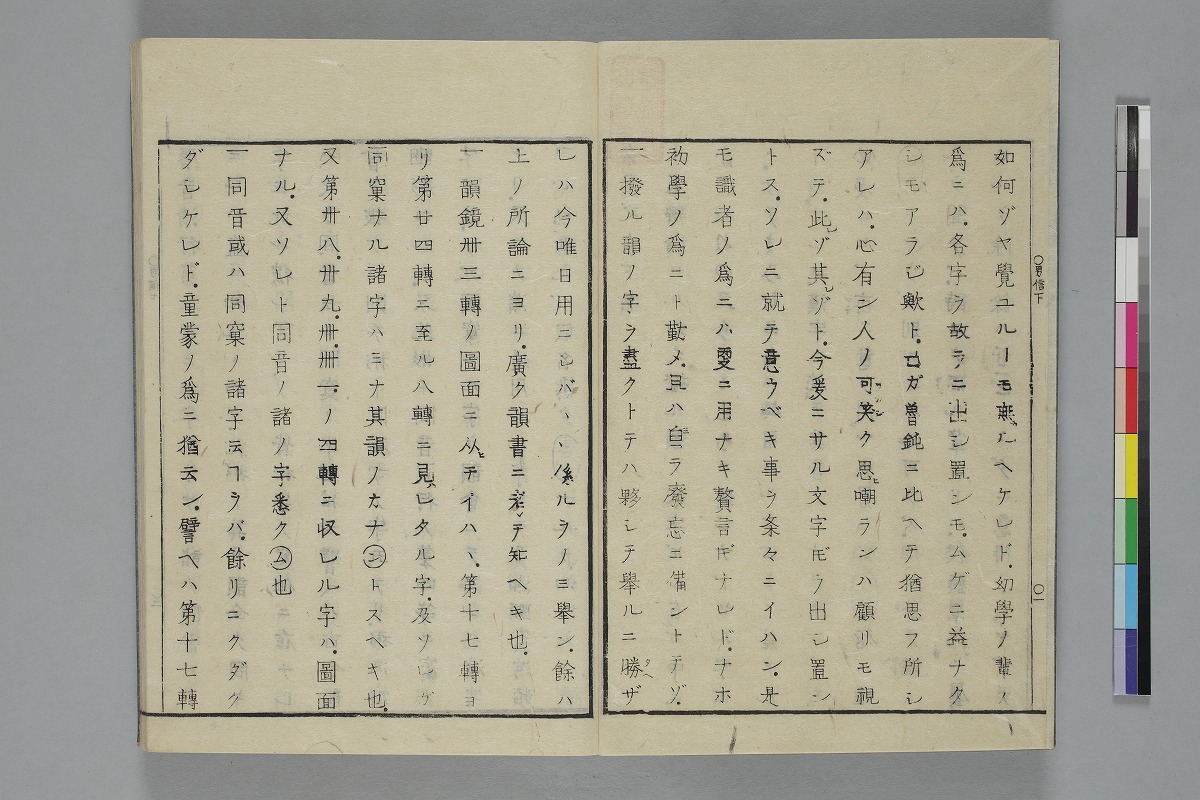 如何ゾヤ覺ユルヿモ無ルヘケレド.幼學ノ輩ノ
爲ニハ.各字ヲ故ラニ出シ置ンモ.ムゲニ益ナク
シモアラジ歟ト.己ガ魯鈍ニ比ヘテ猶思フ所シ
アレハ.心有ン人ノ可笑ク思嘲ランハ顧リモ視
ズテ.此ゾ其ゾト.今爰ニサル文字𪜈ヲ出シ置ン
トス.ソレニ就テ意ウベキ事ヲ条々ニイハン.是
モ識者ノ爲ニハ要ニ用ナキ贅言𪜈ナレド.ナホ
初學ノ爲ニト勤メ.且ハ自ラ廢忘ニ備ントテゾ.
一撥ル韻ノ字ヲ盡クトテハ夥シテ擧ルニ勝ザ
レハ今唯日用ニシバ〱係ルヲノミ擧ン.餘ハ
上ノ所論ニヨリ.廣ク韻書ニ考テ知ヘキ也.
一韻鏡卅三轉ノ圖面ニ从テイハヽ.第十七轉ヨ
リ第廿四轉ニ至ル八轉ニ見ヒタル字.及ソレガ
同窠ナル諸字ハミナ其韻ノカナンㇳスヘキ也.
又第卅八.卅九.卅.卅一.ノ四轉ニ収レル字ハ.圖面
ナル.又ソレト同音ノ諸ノ字悉クム也
一同音或ハ同窠ノ諸字云ヿヲバ.餘リニクダク
ダシケレド.童蒙ノ爲ニ猶云ン.譬ヘハ第十七轉